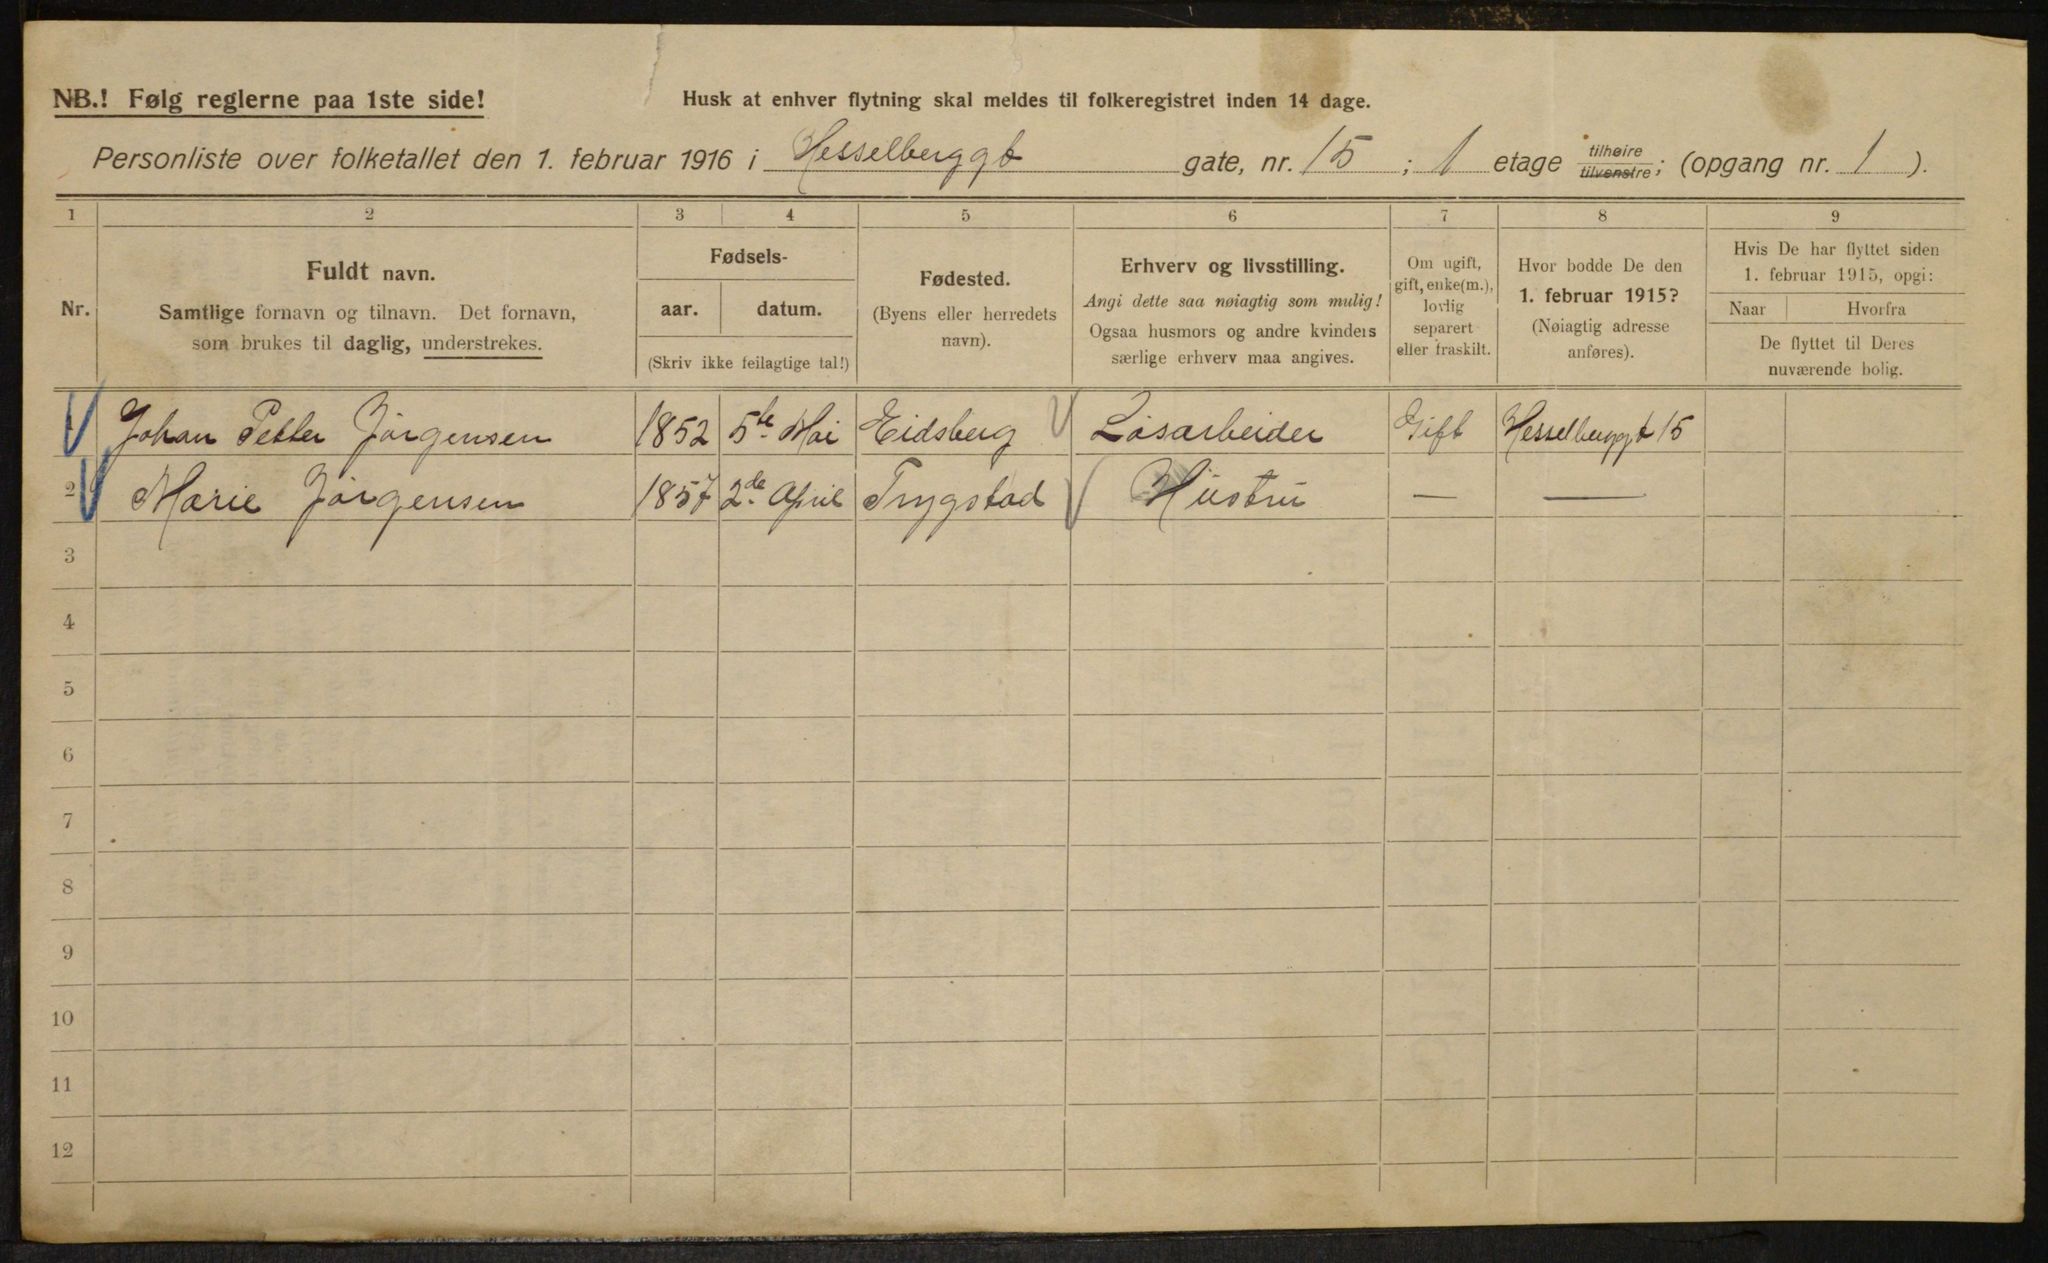 NB.! Følg reglerne paa 1ste side!
Husk at enhver flytning skal meldes til folkeregistret inden 14 dage.
Personliste over folketallet den 1. februar 1916 i Hesselberggt gate, nr. 15 ; 1 etage tilhøire tilvenstre; (opgang nr. 1 ).
1 2 3 4 5 6 7 8 9
Nr.
Fuldt navn.
Samtlige fornavn og tilnavn. Det fornavn,
som brukes til daglig, understrekes.
Fødsels-
aar. datum.
(Skriv ikke feilagtige tal!)
Fødested.
(Byens eller herredets
navn).
Erhverv og livsstilling.
Angi dette saa nøiagtig som mulig!
Ogsaa husmors og andre kvinders
særlige erhverv maa angives.
Om ugift,
gift, enke(m.),
lovlig
separert
eller fraskilt.
Hvor bodde De den
1. februar 1915?
(Nøiagtig adresse
anføres).
Hvis De har flyttet siden
1. februar 1915, opgi:
Naar Hvorfra
De flyttet til Deres
nuværende bolig.
1 Johan Petter Jørgensen 1852 5te Mai Eidsberg Løsarbeider Gift Hesselberggt 15
2 Marie Jørgensen 1857 2de April Trygstad Hustru — —
3
4
5
6
7
8
9
10
11
12